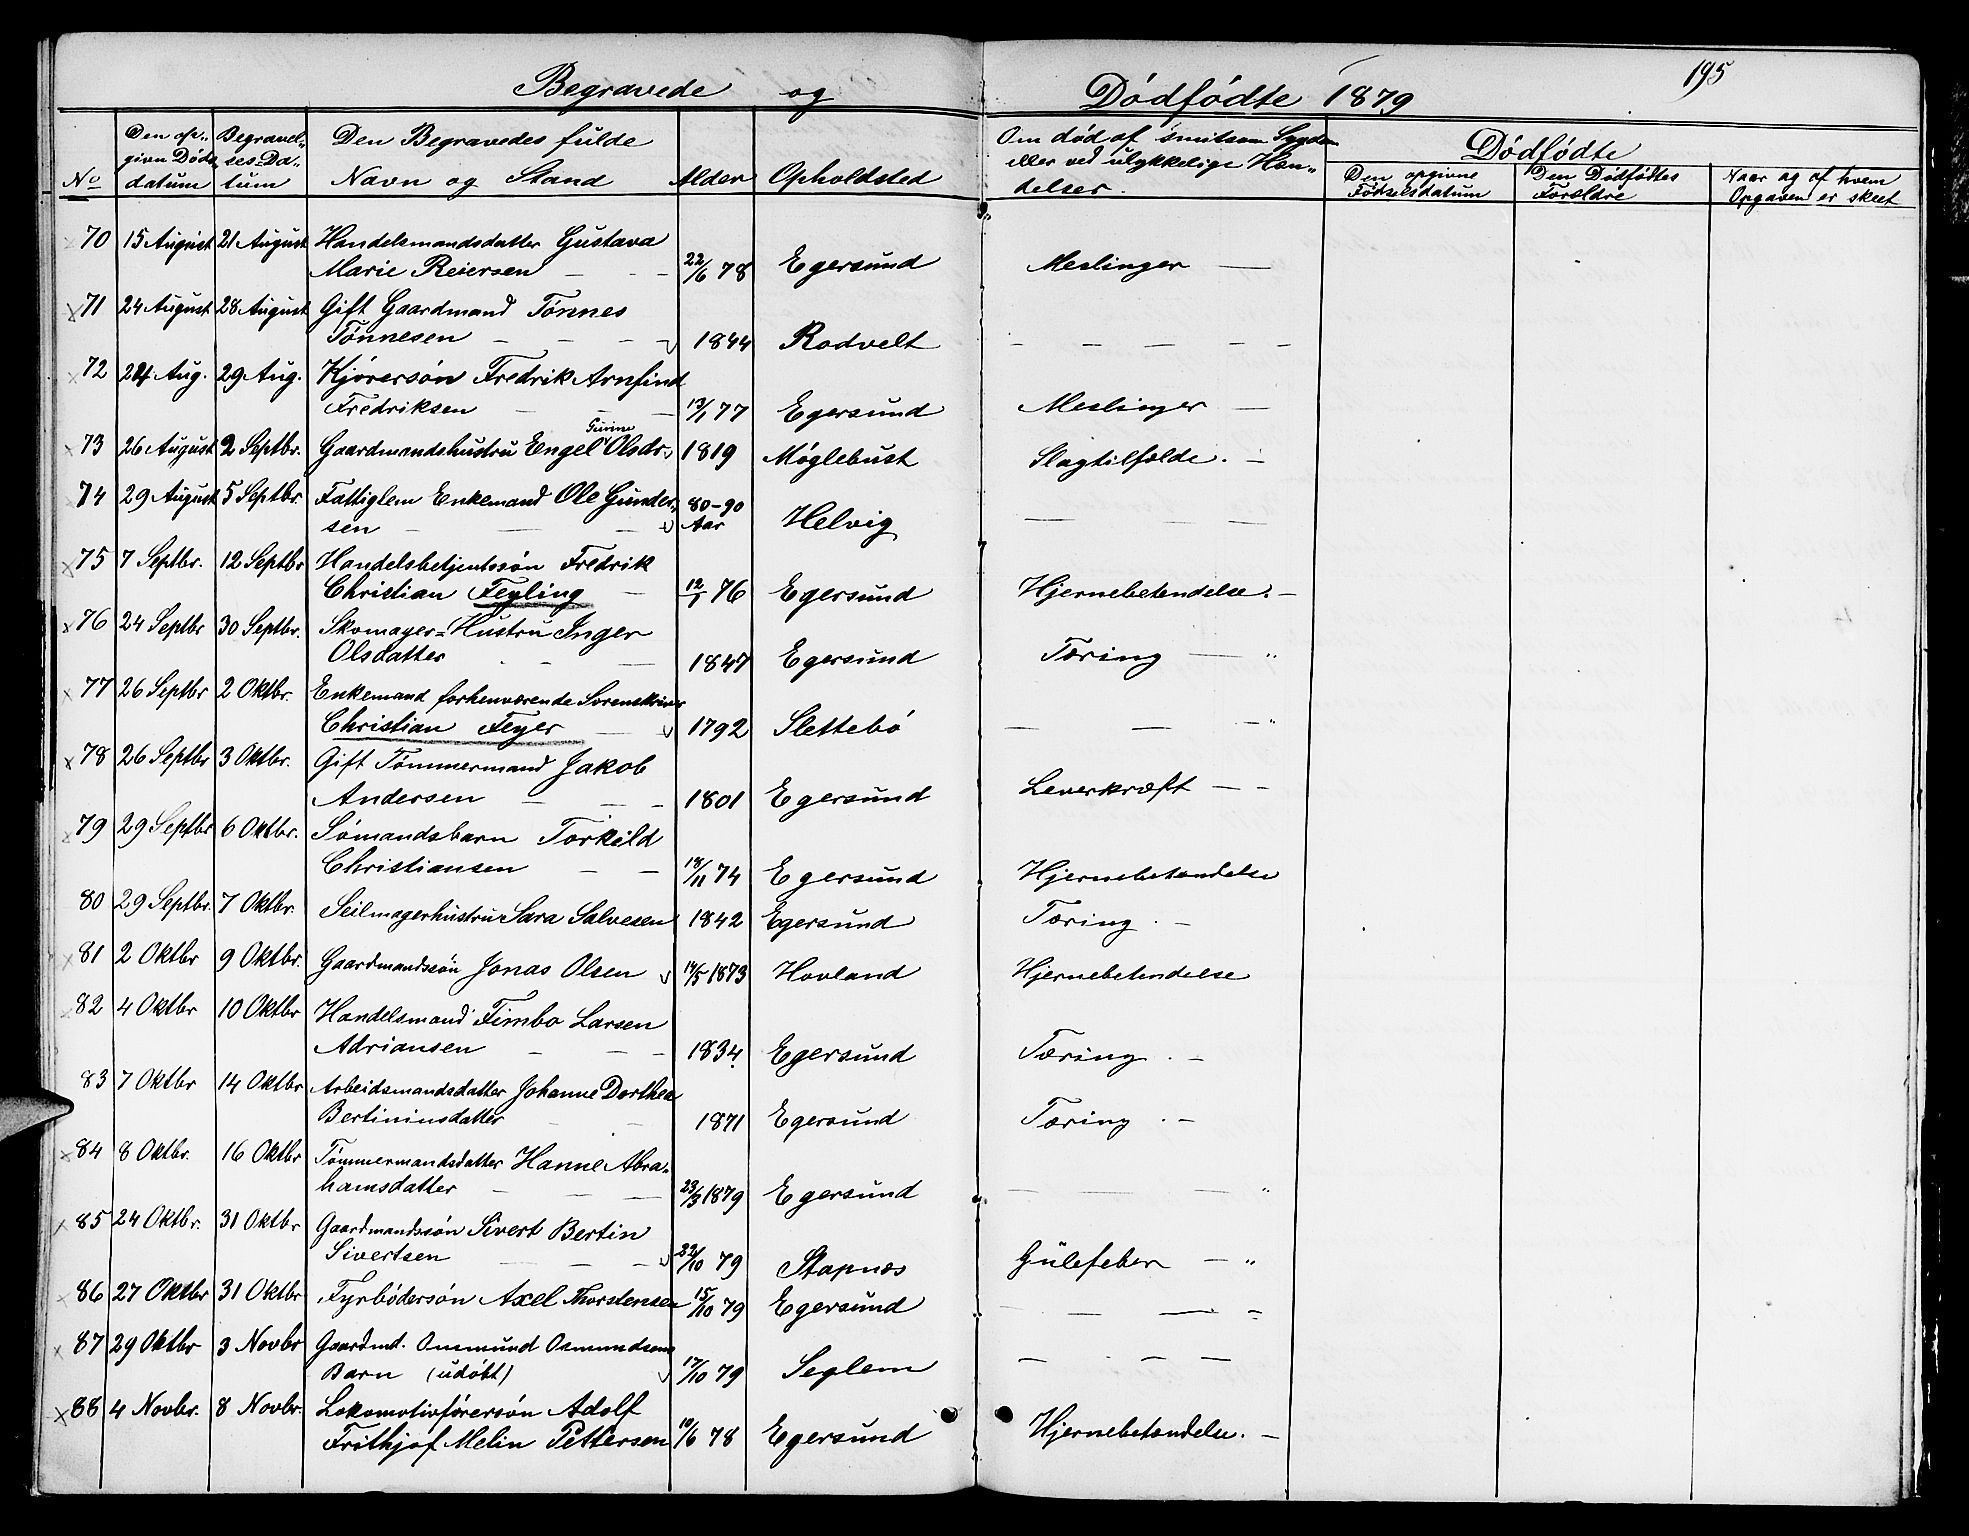 195
Begravede og Dödfödte 1879
No
Den op-
givn Döds
datum
Begravel-
ses-Da-
tum
Den Begravedes fulde
Navn og Stand
Alder
Opholdsted
Om död af smitsom Sygdom
eller ved ulykkelige Hæn-
delser.
Dödfödte
Den opgivne
Födselsdatum
Den Dödfödtes
Forældre
Naar og af hvem
Opgaven er skeet
70 15 August 21 August Handelsmandsdatter Gustava
Marie Reiersen 22/6 78 Egersund Meslinger
71 24 August 28 August Gift Gaardmand Tönnes
Tönnesen 1844 Rodvelt
72 24 Aug. 29 Aug. Kjörersön Fredrik Arnfind
Fredriksen 13/1 77 Egersund Meslinger
73 26 August 2 Septbr. Gaardmandshustru Engel Gurine Olsdr. 1819 Möglebust Slagtilfælde.
74 29 August 5 Septbr. Fattiglem Enkemand Ole Gunder-
sen 80-90 Aar Helvig
75 7 Septbr. 12 Septbr Handelsbetjentssön Fredrik
Christian Feyling 12/1 76 Egersund Hjernebetændelse.
76 24 Septbr 30 Septbr. Skomager-Hustru Inger
Olsdatter 1847 Egersund Tæring
77 26 Septbr 2 Oktbr. Enkemand forhenværende Sorenskriver
Christian Feyer 1792 Slettebö
78 26 Septbr 3 Oktbr. Gift Tömmermand Jakob
Andersen 1801 Egersund Leverkræft
79 29 Septbr 6 Oktbr. Sömandsbarn Torkild
Christiansen 18/11 74 Egersund Hjernebetændelse
80 29 Septbr. 7 Oktbr. Seilmagerhustru Sara Salvesen 1842 Egersund Tæring
81 2 Oktbr 9 Oktbr. Gaardmandssön Jonas Olsen 14/5 1873 Hovland Hjernebetændelse
82 4 Oktbr 10 Oktbr Handelsmand Timbo Larsen
Adriansen 1834 Egersund Tæring
83 7 Oktbr 14 Oktbr Arbeidsmandsdatter Johanne Dorthea
Bertininsdatter 1871 Egersund Tæring
84 8 Oktbr. 16 Oktbr Tömmermandsdatter Hanne Abra-
hamsdatter 23/3 1879 Egersund
85 24 Oktbr. 31 Oktbr Gaardmandssön Sivert Bertin
Sivertsen 22/10 79 Stapnæs Gülefeber
86 27 Oktbr 31 Oktbr Fyrbödersön Axel Thorstensen 15/10 79 Egersund
87 29 Oktbr 3 Novbr Gaardmd. Osmund Osmundsens
Barn (udöbt) 17/10 79 Seglem
88 4 Novbr. 8 Novbr. Lokomotivförersön Adolf
Frithjof Melin Pettersen 10/6 78 Egersund Hjernebetændelse.